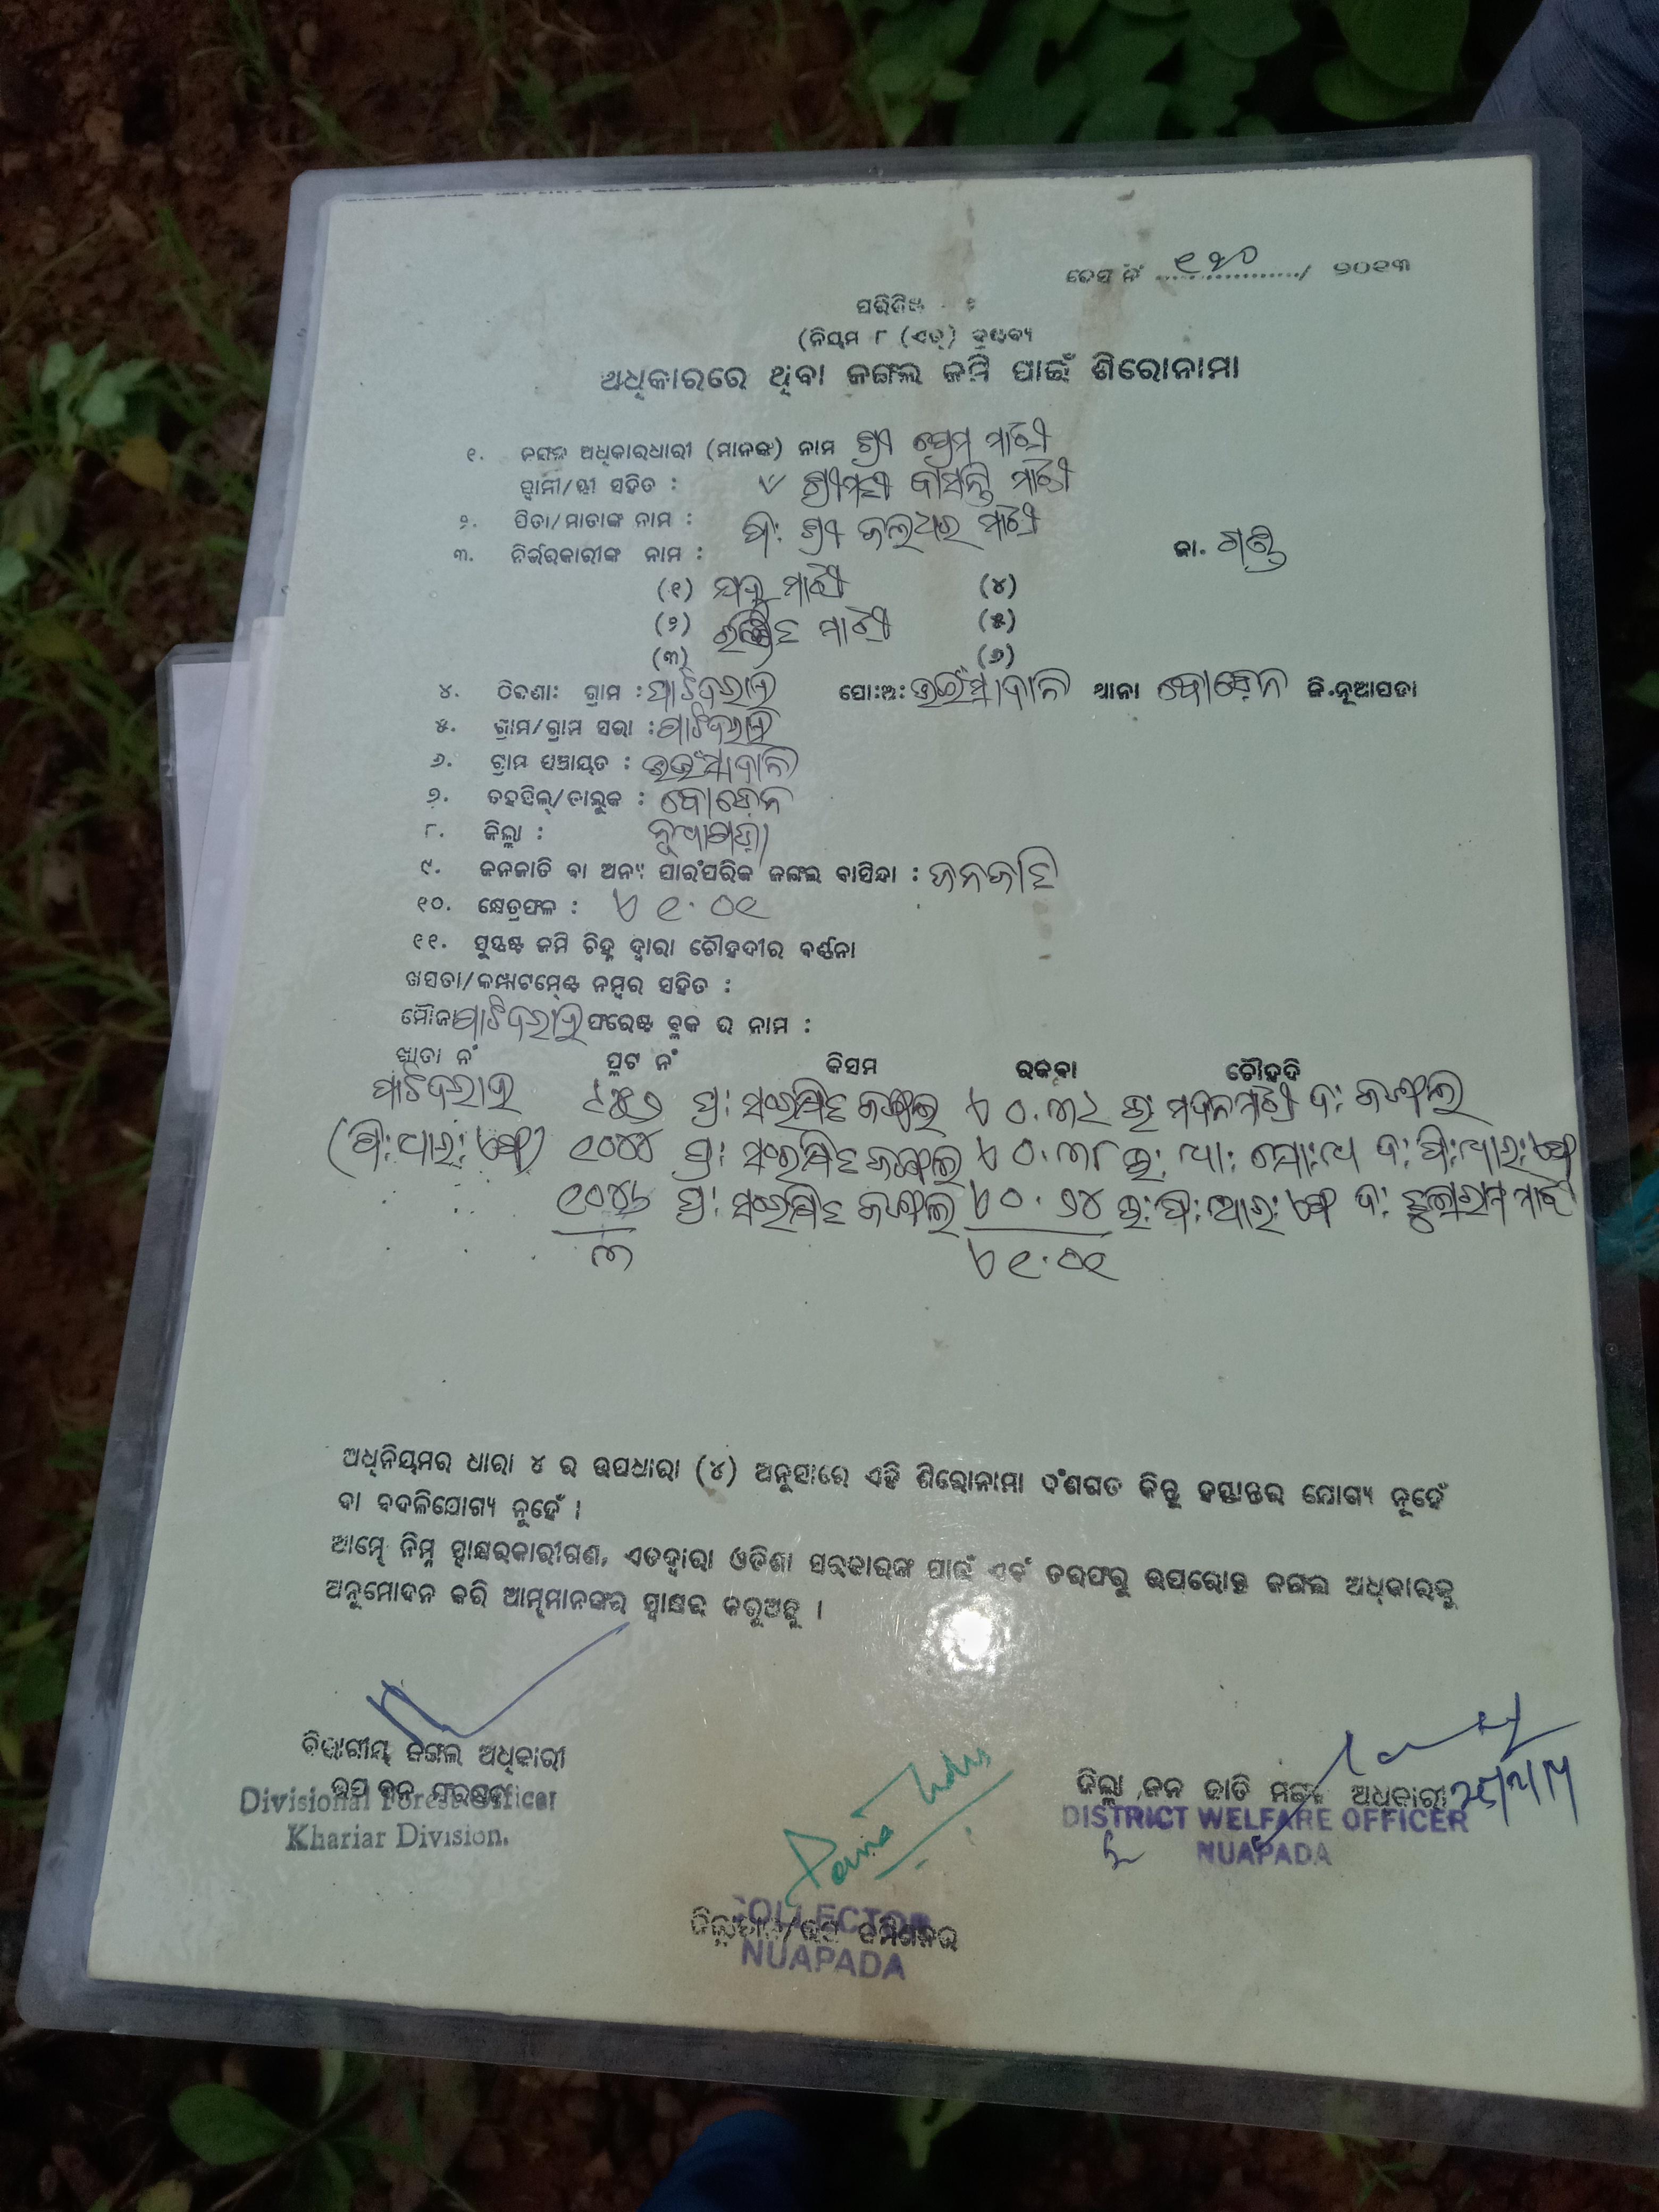 କେସ୍ ନଂ ୧୨୦ / ୨୦୧୩
ପରିଶିଷ୍ଟ - ୨
(ନିୟମ ୮ (ଏଚ୍) ଦ୍ରଷ୍ଟବ୍ୟ
ଅଧିକାରରେ ଥିବା ଜଙ୍ଗଲ ଜମି ପାଇଁ ଶିରୋନାମା
୧. ଜଙ୍ଗଲ ଅଧିକାରଧାରୀ (ମାନଙ୍କ) ନାମ ଶ୍ରୀ ପ୍ରେମ ମାଝୀ
ସ୍ୱାମୀ/ସ୍ତ୍ରୀ ସହିତ : ଶ୍ରୀମତୀ ବାସନ୍ତି ମାଝୀ
୨. ପିତା/ମାତାଙ୍କ ନାମ : ପି: ଶ୍ରୀ ଜଲଧର ମାଝୀ
୩. ନିର୍ଭରକାରୀଙ୍କ ନାମ : ଜା. ଗଣ୍ଡ
(୧) ମାଝୀ (୪)
(୨) ମାଝୀ (୫)
(୩) (୬)
୪. ଠିକଣା: ଗ୍ରାମ : ପାଟଦରାହା ପୋ:ଅ: ଥାନା ବୋଡ଼େନ ଜି.ନୂଆପଡା
୫. ଗ୍ରାମ/ଗ୍ରାମ ସଭା : ପାଟଦରାହା
୬. ଗ୍ରାମ ପଞ୍ଚାୟତ :
୭. ତହସିଲ୍/ତାଲୁକ : ବୋଡ଼େନ
୮. ଜିଲ୍ଲା : ନୂଆପଡ଼ା
୯. ଜନଜାତି ବା ଅନ୍ୟ ପାରଂପରିକ ଜଙ୍ଗଲ ବାସିନ୍ଦା : ଜନଜାତି
୧୦. କ୍ଷେତ୍ରଫଳ : ଏ ୧.୦୧
୧୧. ସୁସ୍ପଷ୍ଟ ଜମି ଚିହ୍ନ ଦ୍ୱାରା ଚୌହଦୀର ବର୍ଣ୍ଣନା
ଖସଡା/କମ୍ପାଟମେଣ୍ଟ ନମ୍ବର ସହିତ :
ମୌଜା ପାଟଦରାହା ଫରେଷ୍ଟ ବ୍ଲକ ର ନାମ :
ଖାତା ନଂ ପ୍ଲଟ ନଂ କିସମ ରକବା ଚୌହଦି
ପାଟଦରାହା ପ୍ର: ସଂରକ୍ଷିତ ଜଙ୍ଗଲ ଏ ୦.୩୯ ଉ: ମଦନ ମାଝୀ ଦ: ଜଙ୍ଗଲ
(ପି: ଆର: ଏଫ) ୧୦୪୪ ପ୍ର: ସଂରକ୍ଷିତ ଜଙ୍ଗଲ ଏ ୦.୩୮ ଉ: ଦ: ପି: ଆର: ଏଫ
୧୦୪୬ ପ୍ର: ସଂରକ୍ଷିତ ଜଙ୍ଗଲ ଏ ୦.୨୪ ଉ: ପି: ଆର: ଏଫ ଦ: ମାଝୀ
୩ ଏ ୧.୦୧
ଅଧିନିୟମର ଧାରା ୪ ର ଉପଧାରା (୪) ଅନୁସାରେ ଏହି ଶିରୋନାମା ବଂଶଗତ କିନ୍ତୁ ହସ୍ତାନ୍ତର ଯୋଗ୍ୟ ନୂହେଁ
ବା ବଦଳିଯୋଗ୍ୟ ନୂହେଁ ।
ଆମ୍ଭେ ନିମ୍ନ ସ୍ୱାକ୍ଷରକାରୀଗଣ, ଏତଦ୍ୱାରା ଓଡିଶା ସରକାରଙ୍କ ପାଇଁ ଏବଂ ତରଫରୁ ଉପରୋକ୍ତ ଜଙ୍ଗଲ ଅଧିକାରକୁ
ଅନୁମୋଦନ କରି ଆମ୍ଭମାନଙ୍କର ସ୍ୱାକ୍ଷର କରୁଅଛୁ ।
ବିଭାଗୀୟ ଜଙ୍ଗଲ ଅଧିକାରୀ
ଉପ ବନ ସଂରକ୍ଷକ
Divisional Forest Officer
Khariar Division.
ଜିଲ୍ଲା ଜନ ଜାତି ମଙ୍ଗଳ ଅଧିକାରୀ
DISTRICT WELFARE OFFICER
NUAPADA
COLLECTOR
ଜିଲ୍ଲାପାଳ/ଉପ କମିଶନର
NUAPADA